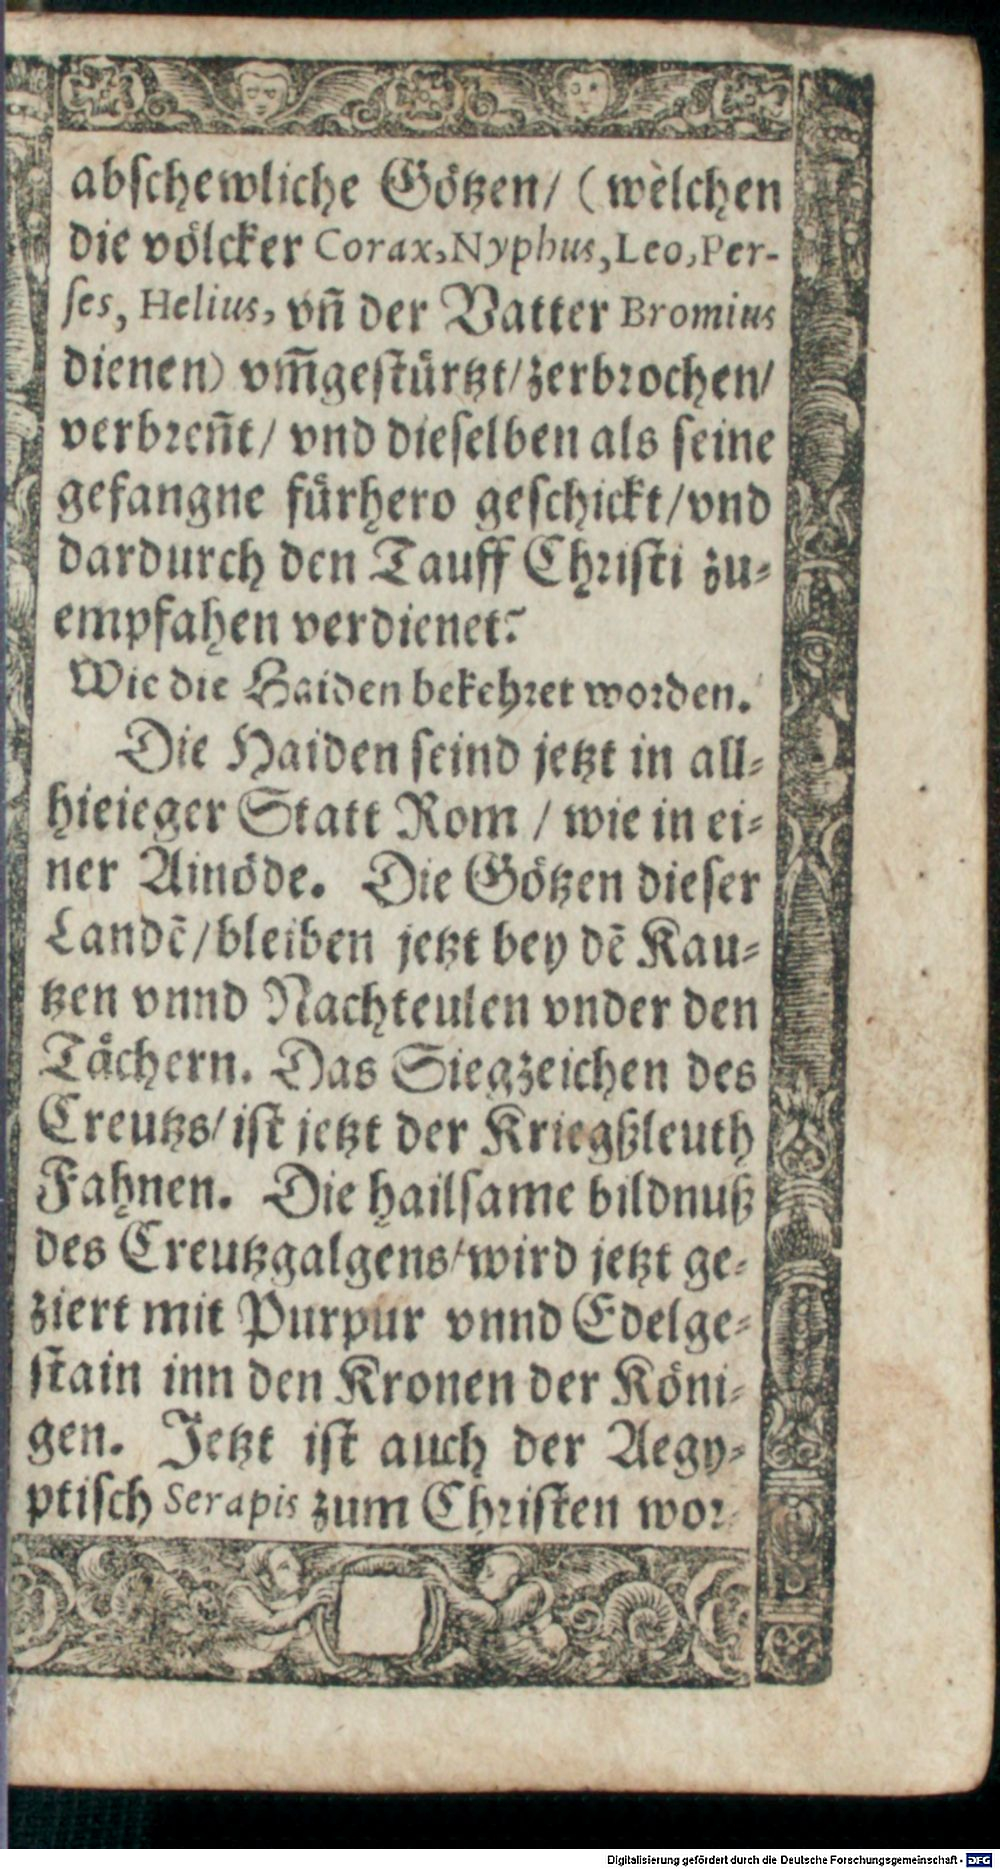 abschewliche Götzen/ (wèlchen
die völcker Corax, Nyphus, Leo, Per-
ses, Helius, vñ der Vatter Bromius
dienen) vm̃gestürtzt/ zerbrochen/
verbreñt/ vnd dieselben als seine
gefangne fürhero geschickt/ vnd
dardurch den Tauff Christi zu-
empfahen verdienet?
Wie die Haiden bekehret worden.
Die Haiden seind jetzt in all-
hieieger Statt Rom / wie in ei-
ner Ainöde. Die Götzen dieser
Landẽ/ bleiben jetzt bey dẽ Kau-
tzen vnnd Nachteulen vnder den
Tächern. Das Siegzeichen des
Creutzs/ ist jetzt der Kriegßleuth
Fahnen. Die hailsame bildnuß
des Creutzgalgens/ wird jetzt ge-
ziert mit Purpur vnnd Edelge-
stain inn den Kronen der Köni-
gen. Jetzt ist auch der Aegy-
ptisch Serapis zum Christen wor-
Digitalisierung gefördert durch die Deutsche Forschungsgemeinschaft - DFG